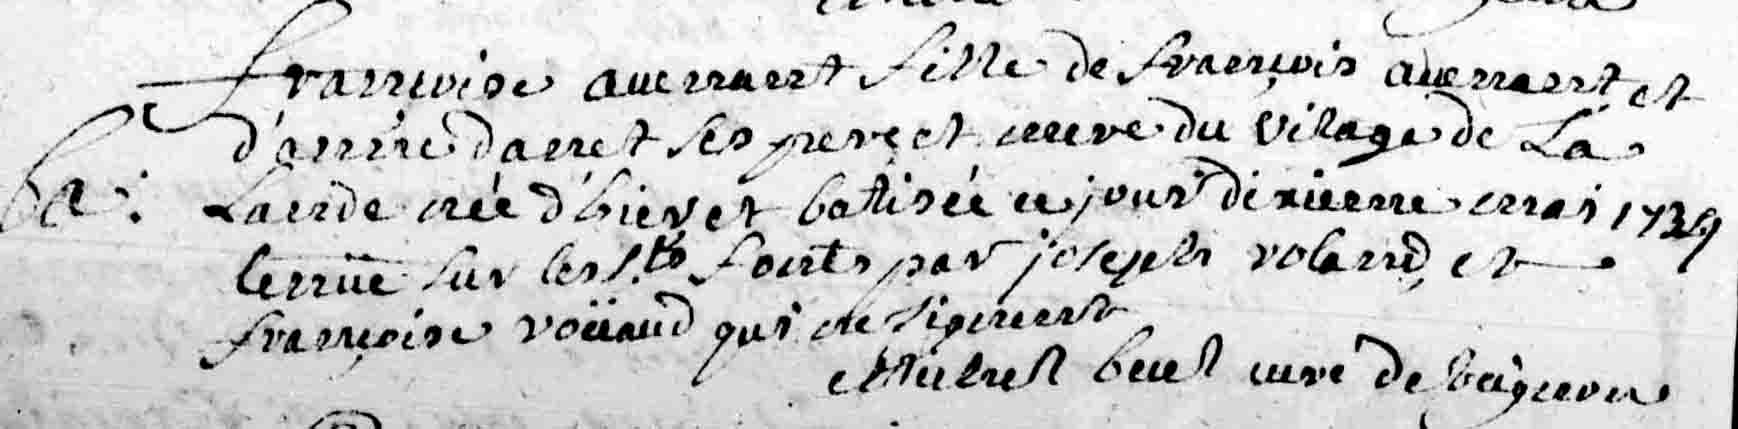 françoise auenant fille de françois auenant et
d'anne danet ses pere et mere du vilage de La
ba: Lande née d'hier et batisée ce jour dixieme mai 1739
tenüe sur les sts fonts par joseph roland, et
françoise voüaud qui ne signent
beul curé de